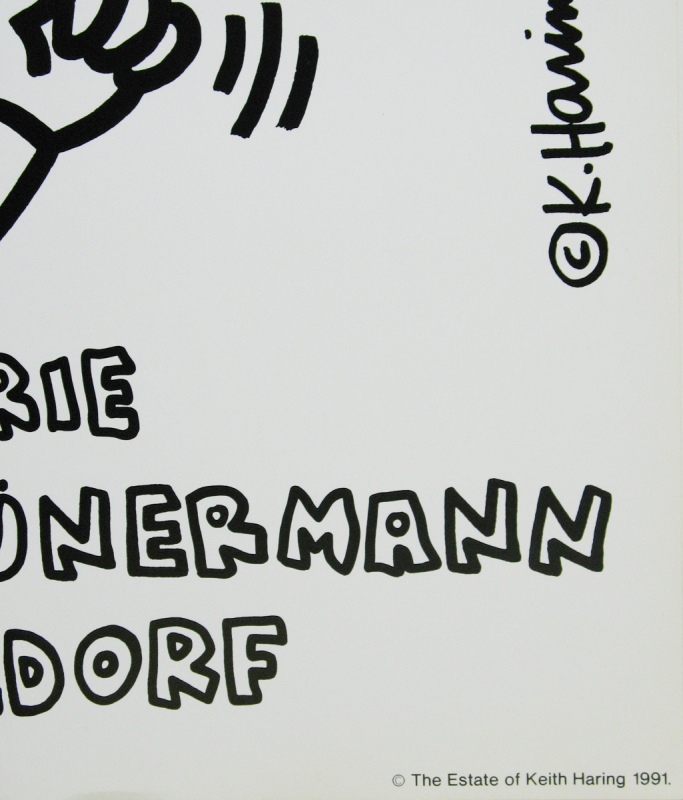 © K. Harin
RIE
ÜNERMANN
DORF
© The Estate of Keith Haring 1991.